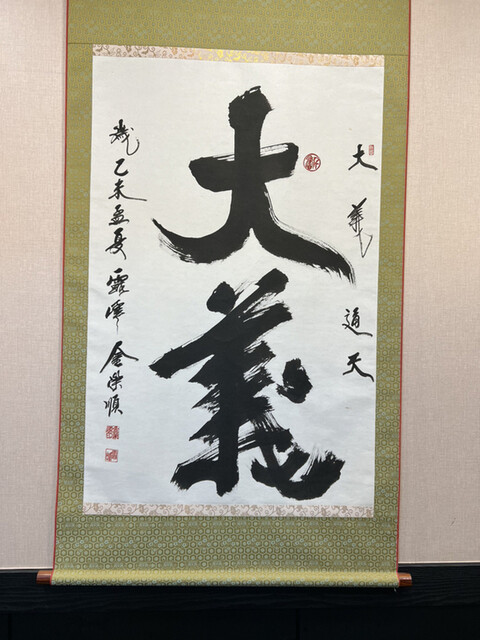 大義通天
大義
歲乙未孟夏 金榮順